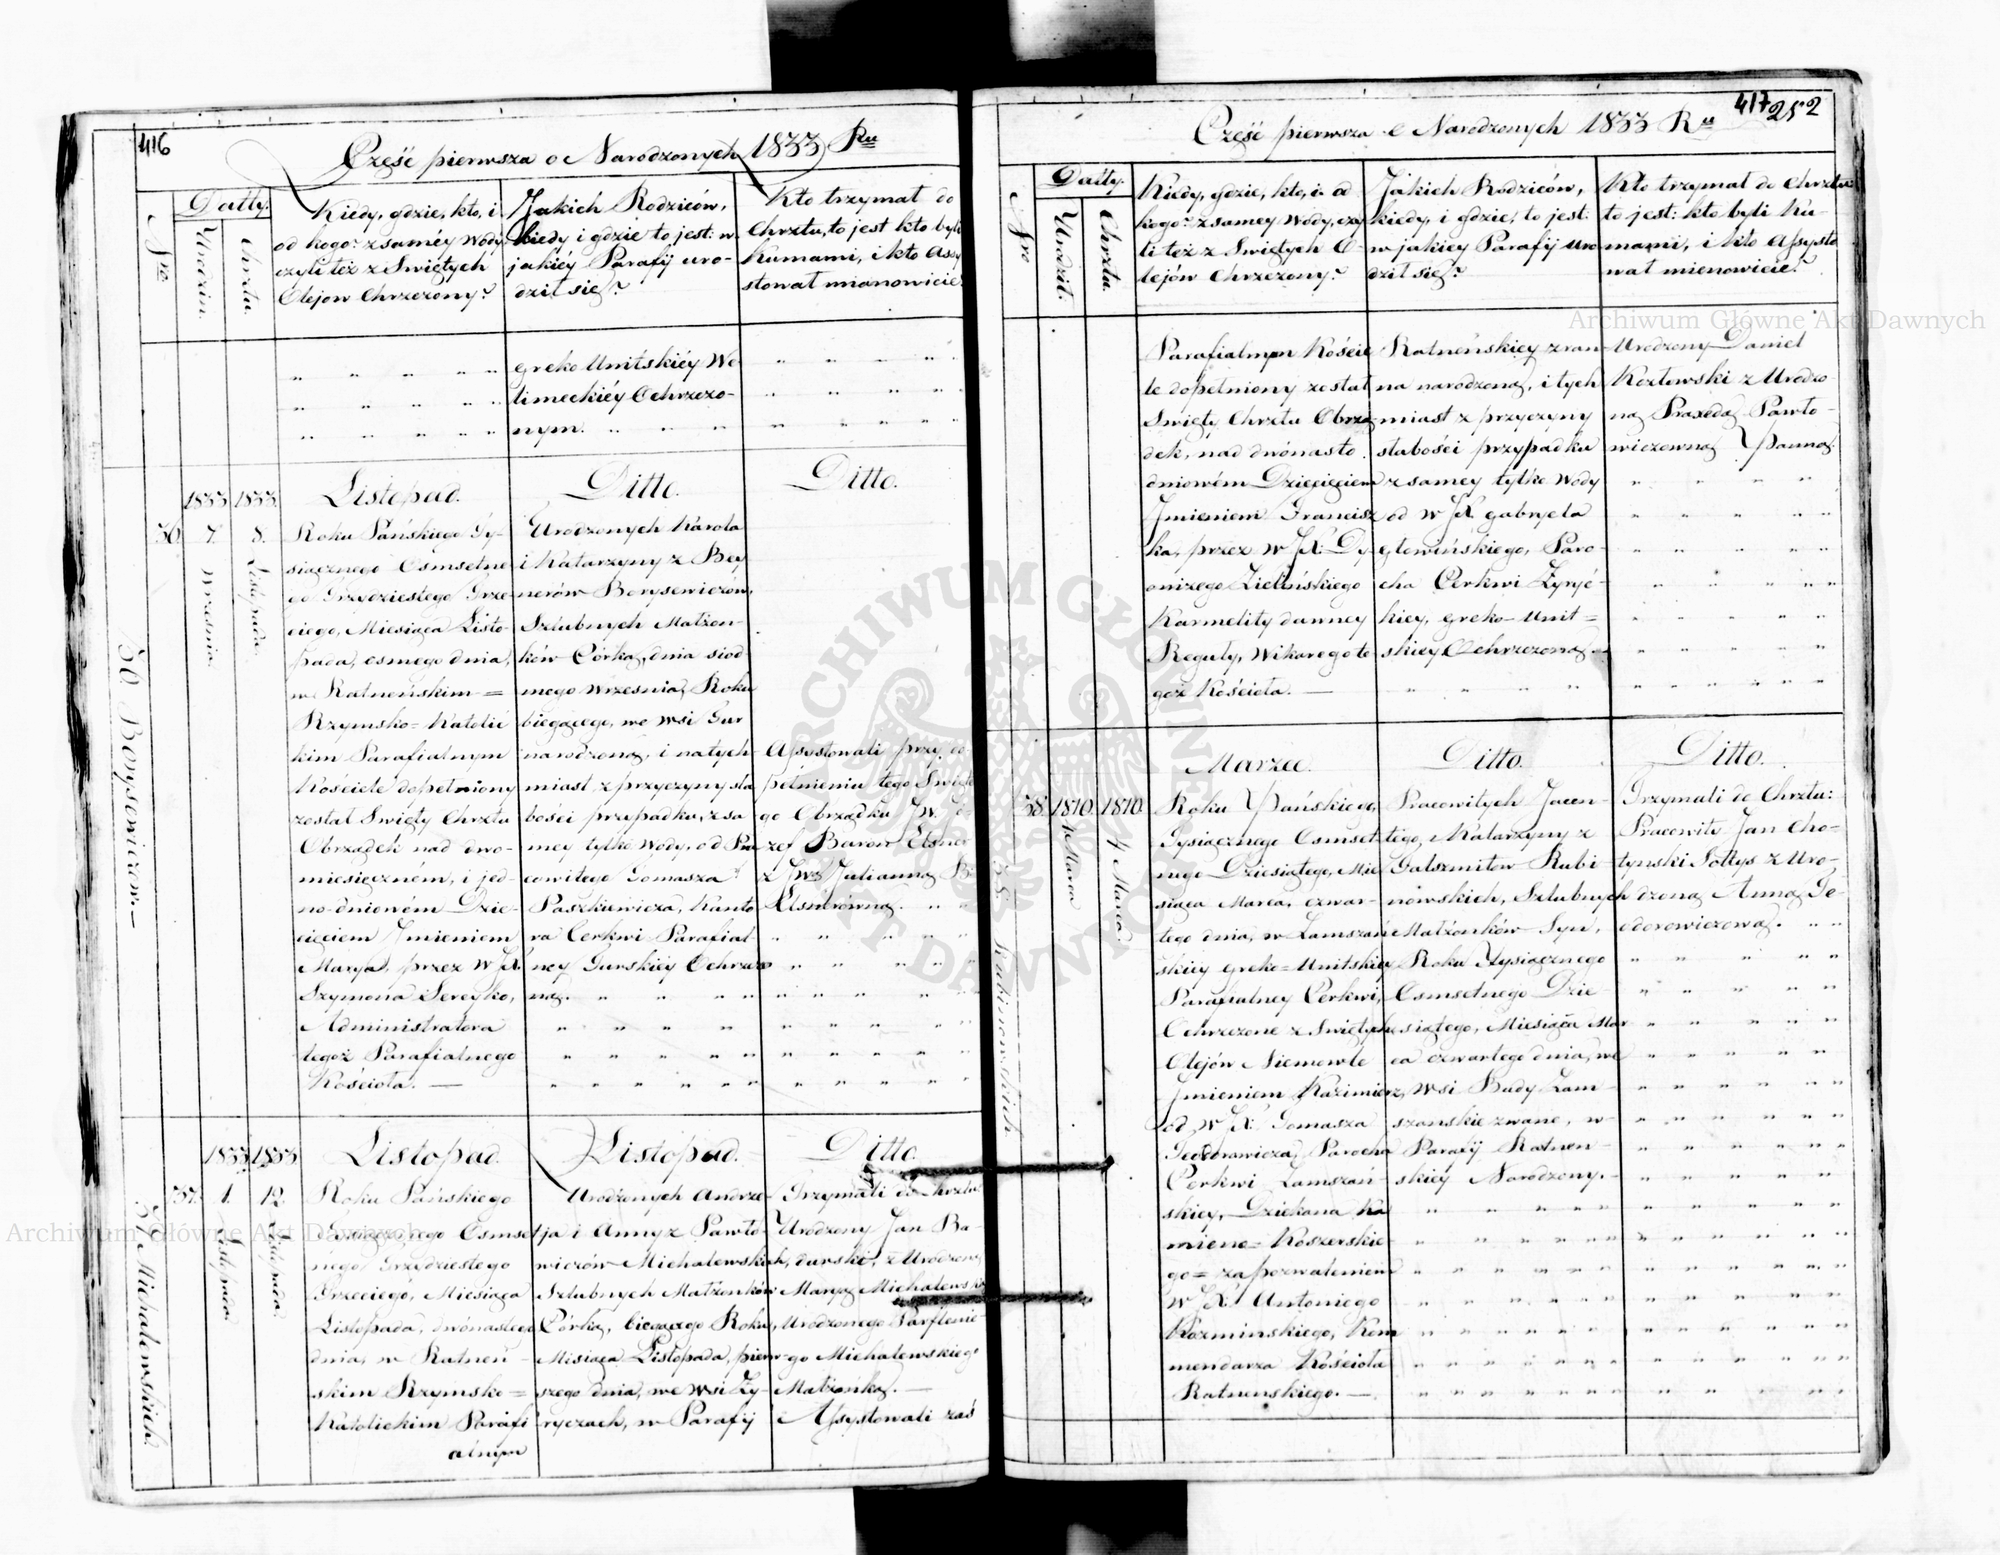 416
Część pierwsza o Narodzonych 1833 Ru
Nro
Datty.
Urodzin.
Chrztu.
Kiedy, gdzie, kto, i
od kogo? z saméy Wody
czyli też z Swiętych
Olejow Chrzczony?
Jakich Rodziców,
kiedy i gdzie to jest: w
jakiéy Parafij uro-
dził się?
Kto trzymał do
Chrztu, to jest kto byli
Kumami, i kto Assy
stował mianowicie?
greko Unitskiéy We-
limeckiéy Ochrzczo-
nym.
36 Borysewiczow.
1833 1833
36. 7. 8.
Wrzesnia.
Listopada.
Listopad.
Roku Pańskiego Ty-
siącznego Osmsetne
go Trzydziestego Trze-
ciego, Miesiąca Listo-
pada, osmego dnia,
w Ratneńskim =
Rzymsko = Katolic
kim Parafialnym
Kościele dopełniony
został Swięty Chrztu
Obrządek nad dwo-
miesięczném, i jed-
no-dniowém Dzie-
cięciem Jmieniem
Marya, przez W JX.
Szymona Sereyko,
Administratora
tegoż Parafialnego
Kościoła. —
Ditto.
Urodzonych Karola
i Katarzyny z Bey
nerów Borysewiczów,
Szlubnych Małżon-
ków Córką, dnia siod
mego Wrzesnia, Roku
biegącego, we wsi Gur
narodzoną, i natych-
miast z przyczyny sła
bości przypadku, z sa
mey tylko Wody, od Pra
cowitego Tomasza
Paszkiewicza, Kanto
ra Cerkwi Parafial
ney Gurskiéy Ochrzczo
ną.
Ditto.
Assystowali przy do-
pełnieniu tego Swięte
go Obrządku W. Jó-
zef Baron Elsner
z JWą Julianną B.
Elsnerówną.
37 Michalewskich.
1833 1833
37. 1. 12.
Listopada.
Listopada.
Listopad.
Roku Pańskiego
Tysiącznego Osmset-
nego Trzydziestego
Trzeciego, Miesiąca
Listopada, dwónastego
dnia, w Ratneń-
skim Rzymsko =
Katolickim Parafi
alnym
Listopad.
Urodzonych Andrze-
ja i Anny z Pawło-
wiczów Michalewskich,
Szlubnych Małżonków
Córką, biegącego Roku,
Misiąca Listopada, pierw-
szego dnia, we wsi Ży-
ryczach, w Parafij
Ditto.
Trzymali do Chrztu
Urodzony Jan Ba-
darski, z Urodzoną
Maryą Michalewską
Urodzonego Parfienie-
go Michalewskiego
Małżonką. —
Assystowali zaś
417 252
Część pierwsza o Narodzonych 1833 Ru
Nro
Datty.
Urodził.
Chrztu.
Kiedy, gdzie, kto, i od
kogo? z samey Wody, czy
li też z Swiętych O-
lejów Chrzczony?
Jakich Rodziców,
kiedy, i gdzie, to jest:
w jakiey Parafij uro-
dził się?
Kto trzymał do Chrztu
to jest: kto byli Ku-
mami, i kto Assysto
wał mienowicie?
Parafialnym Koście
le dopełniony został
Swięty Chrztu Obrzą
dek, nad dwónasto
dniowém Dziecięciem
Jmieniem Francisz
ka, przez W JX: Dy-
onizego Zielińskiego
Karmelity dawney
Reguły, Wikarego te
goż Kościoła. —
Ratneńskiey z ran-
na narodzoną, i tych
miast z przyczyny
słabości przypadku
z samey tylko Wody
od W JX. Gabryela
Głowińskiego, Paro-
cha Cerkwi Żyryc-
kiey, greko-Unit=
skiey Ochrzczoną.
Urodzony Daniel
Kozłowski z Urodzo
ną Praxedą Pawło-
wiczowną Panną.
38 Rubinowskich
38. 1810. 1810.
4 Marca
4 Marca.
Marzec.
Roku Pańskiego,
Tysiącznego Osmset-
nego Dziesiątego, Mie
siąca Marca, czwar-
tego dnia, w Łamszań
skiey greko=Unitskiey
Parafialney Cerkwi,
Ochrzczone z Swiętych
Olejów Niemowle
Jmieniem Kazimierz,
od W JX: Tomasza
Teodorawicza, Parocha
Cerkwi Łamszań-
skiey, Dziekana Ka
miene=Koszerskie-
go = za pozwaleniem
W JX: Antoniego
Kozminskiego, Kom
mendarza Kościoła
Ratnenskiego. —
Ditto.
Pracowitych Jacen-
tego, Katarzyny z
Galszmitow Rubi-
nowskich, Szlubnych
Małżonków Syn,
Roku Tysiącznego
Osmsetnego Dzie-
siątego, Miesiąca Mar
ca czwartego dnia, we
Wsi Budy Łam-
szanskie zwane, w
Parafij Ratnen-
skiéy Narodzony.
Ditto.
Trzymali do Chrztu:
Pracowity Jan Cho-
tynski Sołtys z Uro-
dzoną Anną Te-
odorowiczową.
Archiwum Główne Akt Dawnych
Archiwum Główne Akt Dawnych
ARCHIWUM GŁÓWNE AKT DAWNYCH